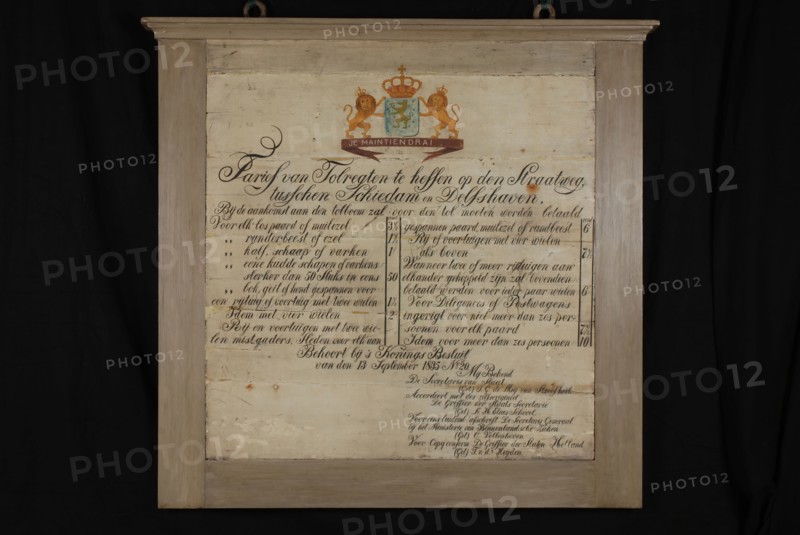 JE MAINTIENDRAI
Tarief van Tolregten te heffen op den Straatweg,
tusschen Schiedam en Delfshaven.
Bij de aankomst aan den tolboom zal voor den tol moeten worden betaald
Voor elk los paard of muilezel
„ runderbeest of ezel 1½
„ kalf, schaap of varken 1
„ eene kudde schapen of varkens
sterker dan 50 stuks in eens 50
„ bok, geit of hond gespannen voor
een rijtuig of voertuig met twee wielen 1½
Idem met vier wielen 2
Rij en voertuigen met twee wie-
len mistgaders, Sleden voor elk aan
gespannen paard, muilezel of rundbeest 6
Rij of voertuigen met vier wielen
als boven 7½
Wanneer twee of meer rijtuigen aan
elkander gekoppeld zijn zal bovendien
betaald worden voor ieder paar wielen 6
Voor Diligences of Postwagens
ingerigt voor niet meer dan zes per-
soonen voor elk paard 7½
Idem voor meer dan zes persoonen 10
Behoort bij 's Konings Besluit
van den 13 September 1835 No 20
Mij Bekend
De Secretaris van Staat
(Get)
Accordeert met des zelfs origineel
De Griffier der Staats Secretarie
(Get)
De Secretaris Generaal
bij het Ministerie van Binnenlandsche Zaken
(Get) C. Vollenhoven
Voor Copij conform De Griffier der Staten Holland
(Get) v.d. Heyden
PHOTO12